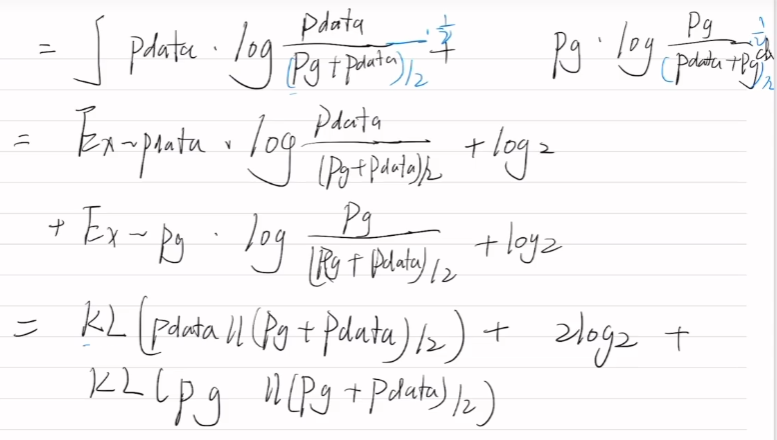 = ∫ Pdata · log Pdata / (Pg + Pdata)/2 · 1/2 + Pg · log Pg / (Pdata + Pg)/2 · 1/2
= Ex~pdata · log Pdata / (Pg+Pdata)/2 + log2
+ Ex~pg · log Pg / (Pg + Pdata)/2 + log2
= KL(Pdata || (Pg + Pdata)/2) + 2log2 +
KL(pg || (Pg + Pdata)/2)